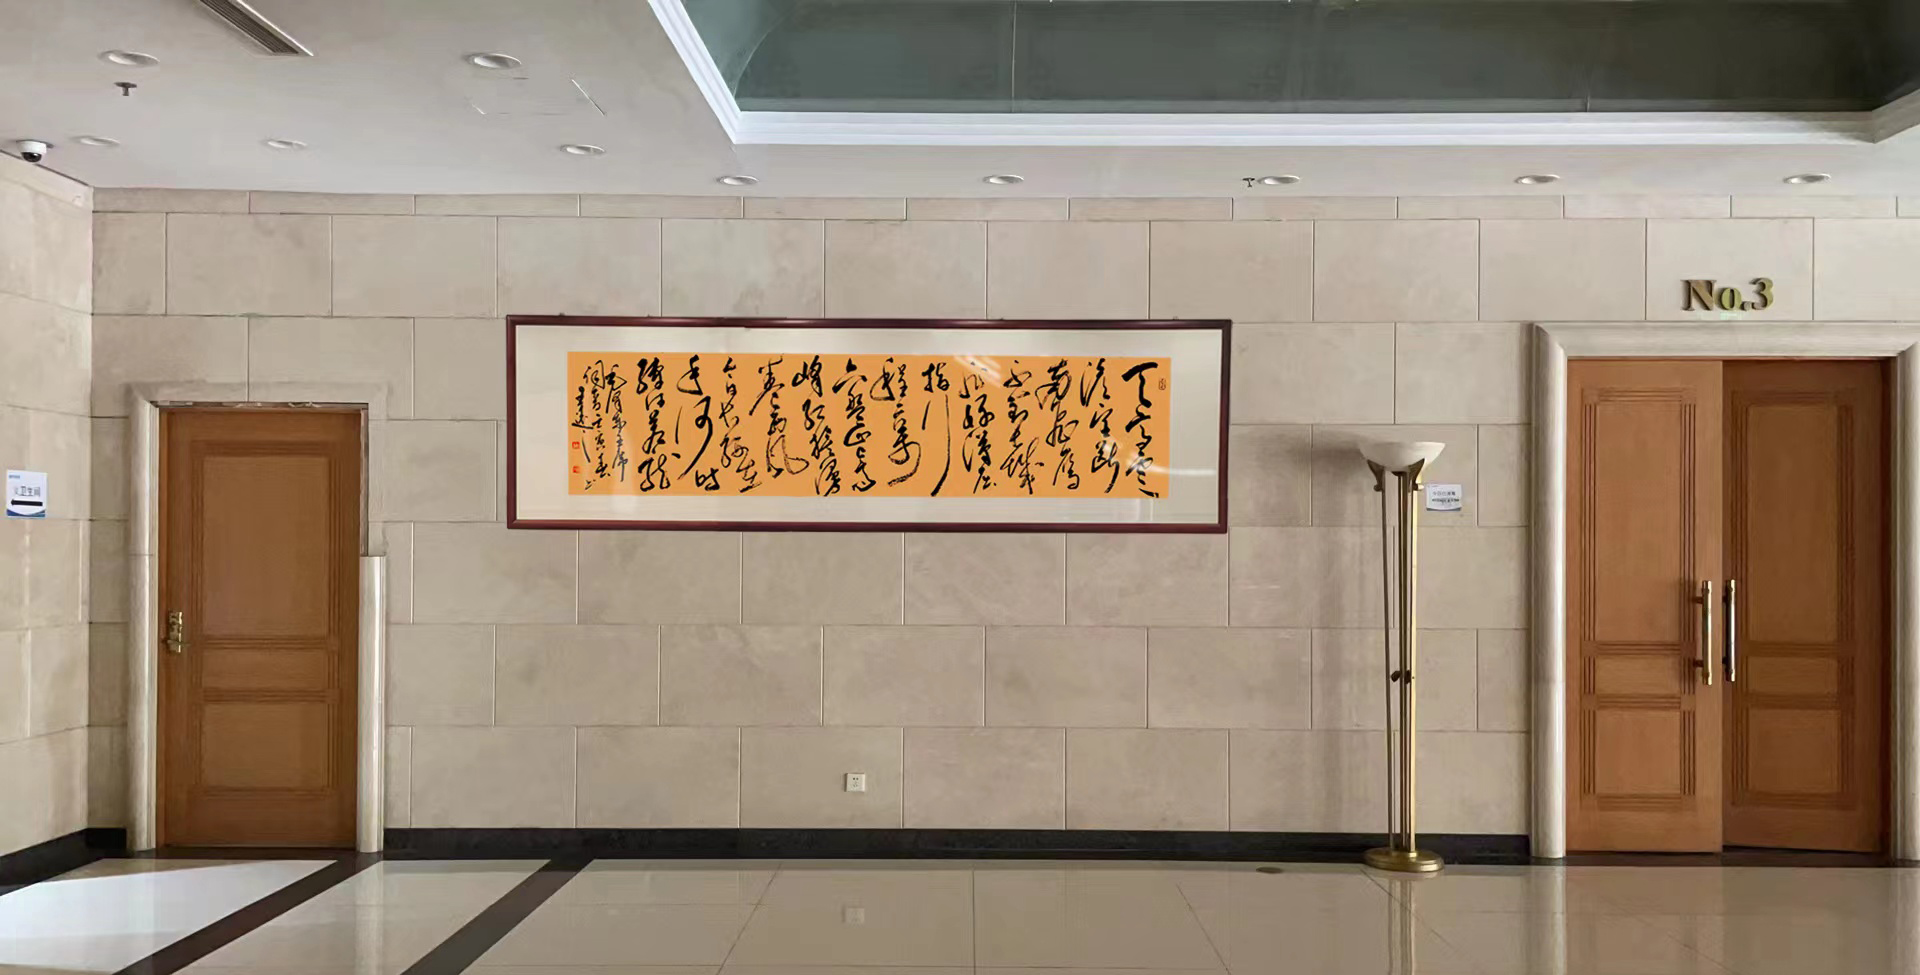 天高雲
淡望断
南飛雁
不到长城
非好漢屈
指行
程二万
六盘山上高
峰红旗漫
卷西风
今日长缨在
手何时
缚住苍龙
毛泽东主席
No.3
卫生间